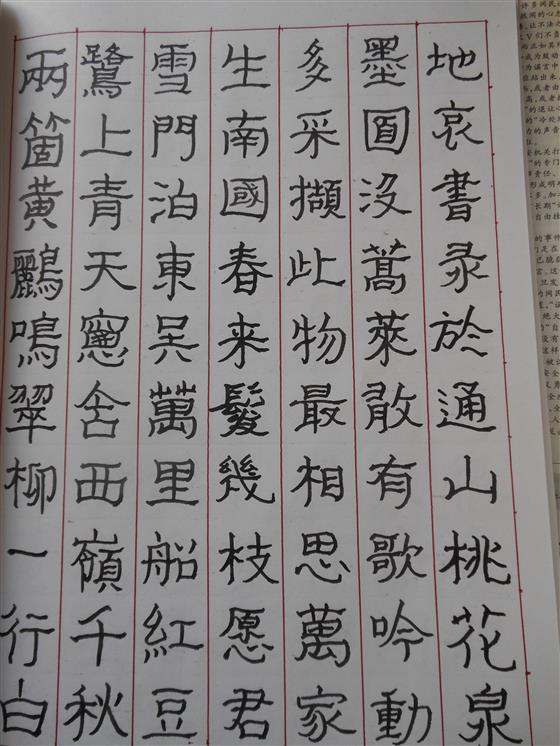 地哀書录於通山桃花泉
墨面沒蒿萊敢有歌吟動
多采擷此物最相思萬家
生南國春来髮幾枝愿君
雪門泊東吳萬里船紅豆
鷺上青天窻含西嶺千秋
兩箇黃鸝鳴翠柳一行白